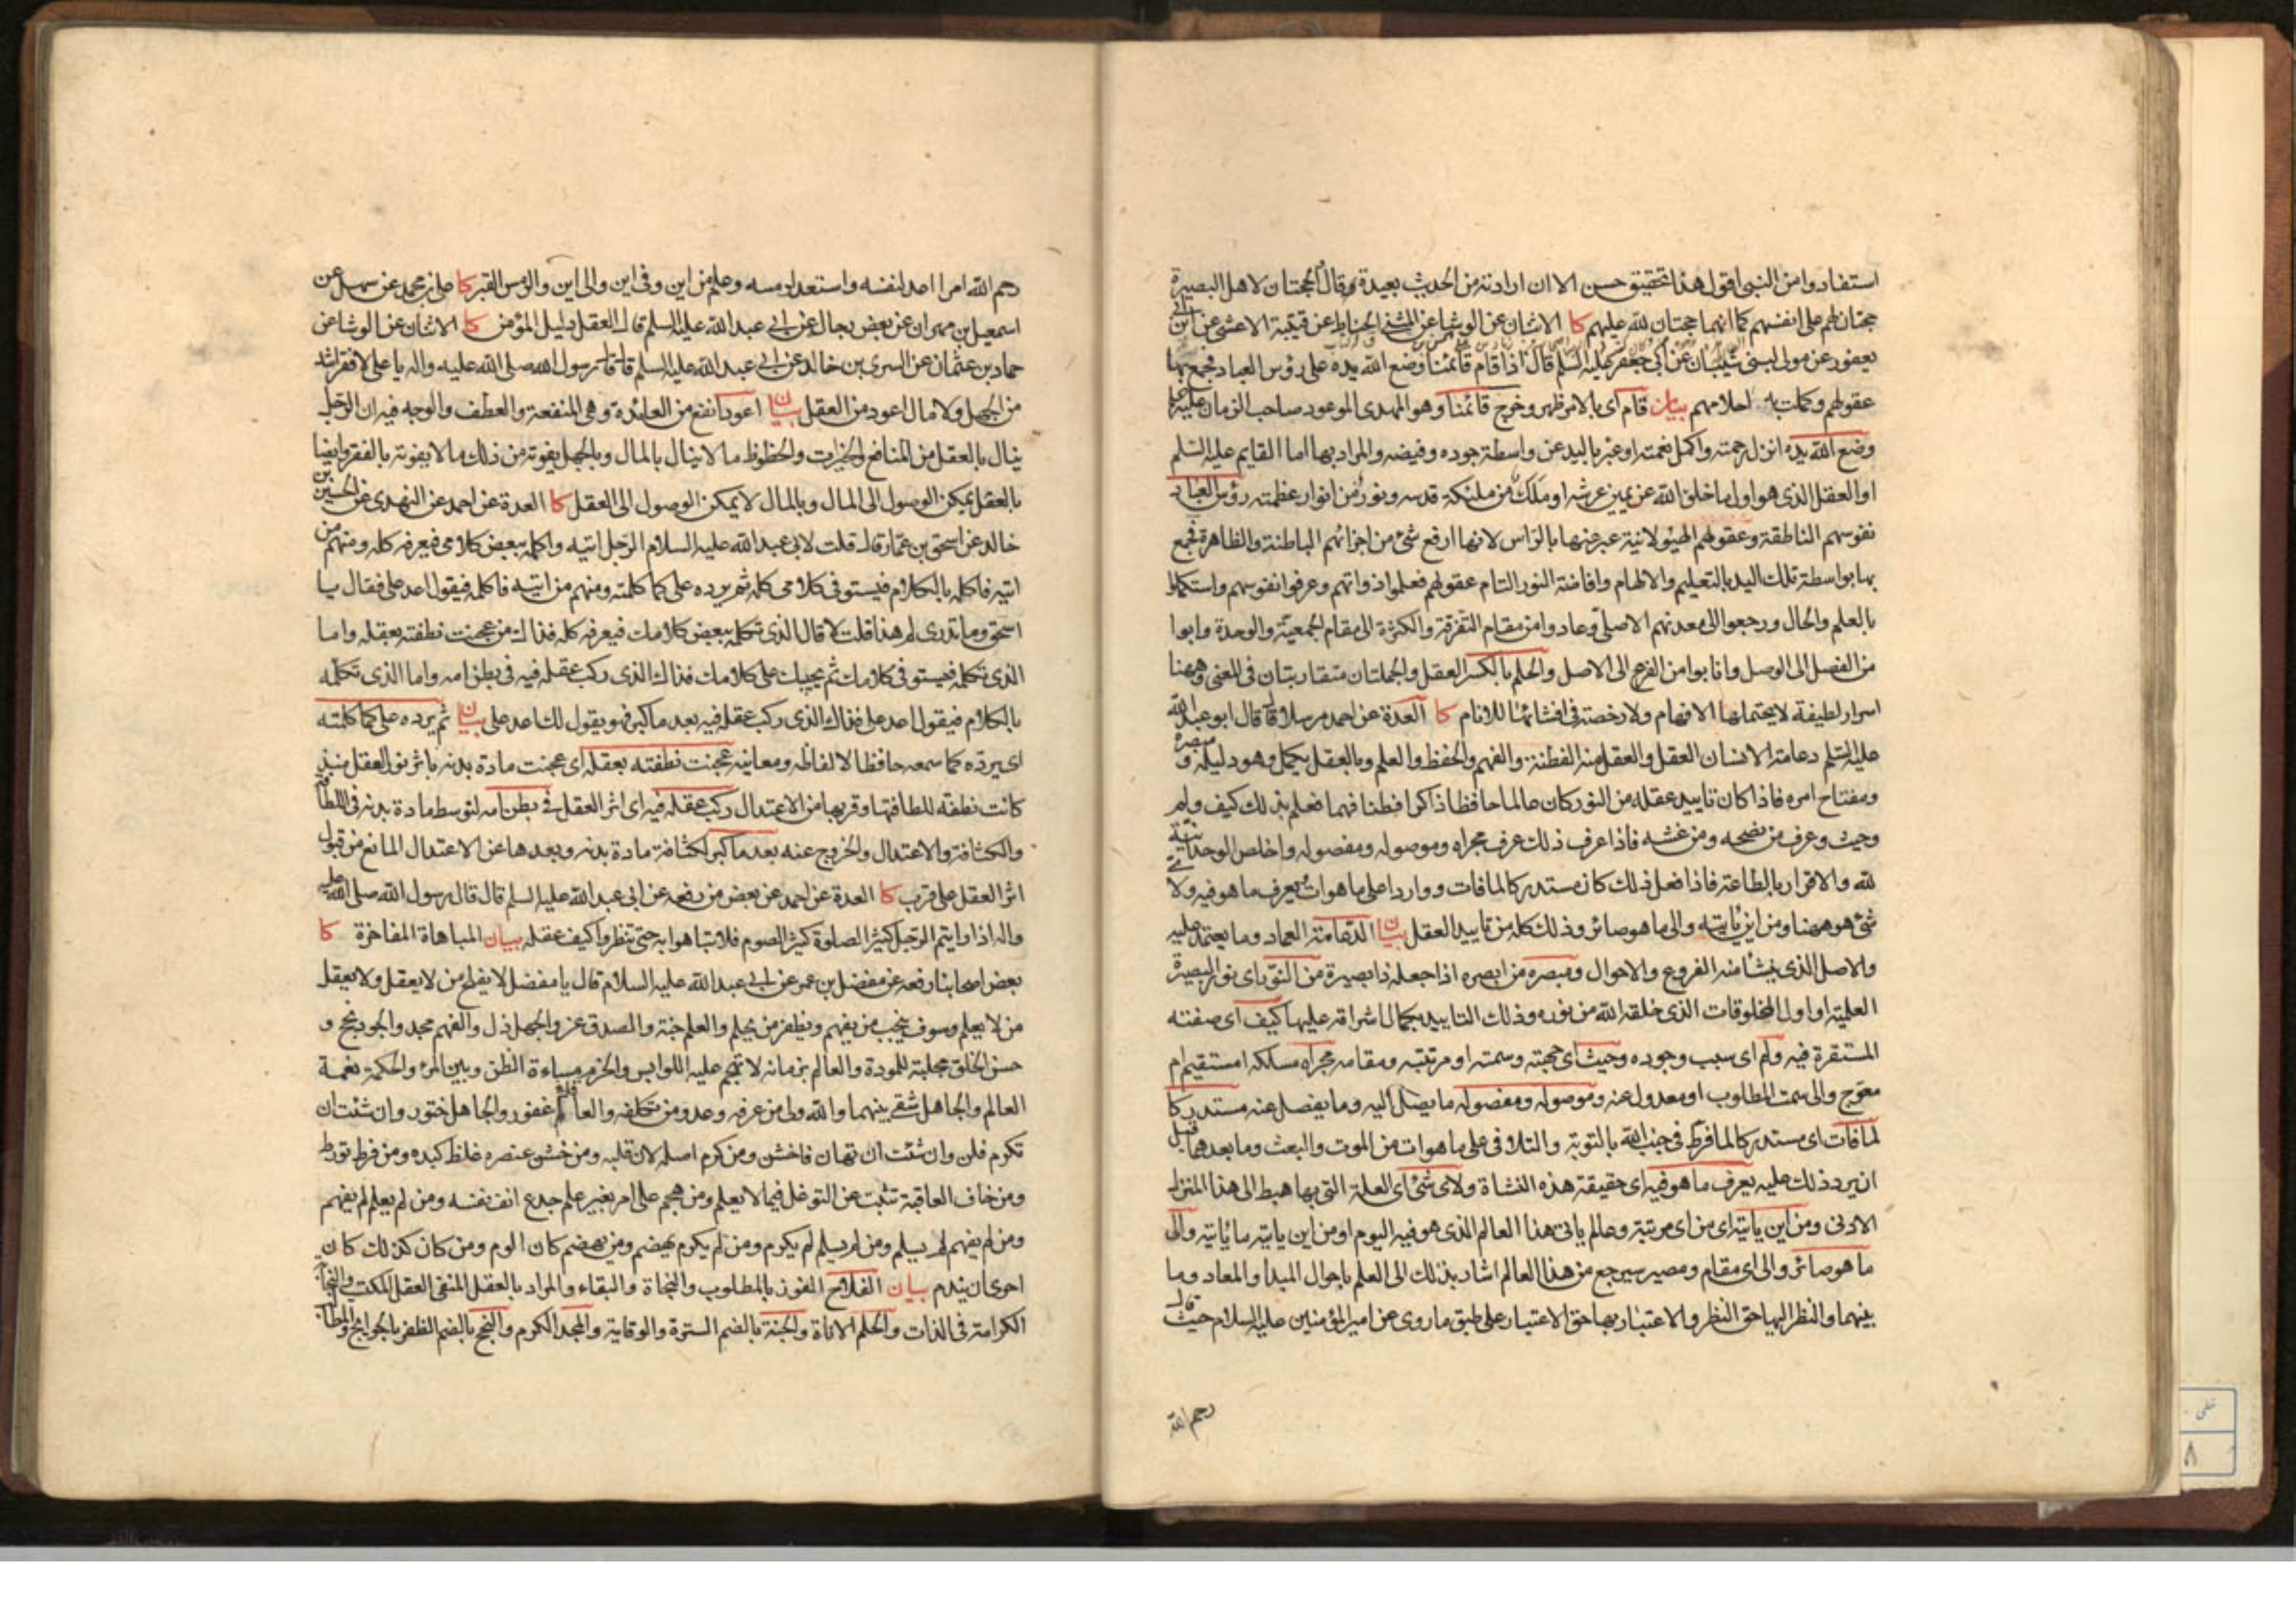 استفادوا من النبي اقول هذا تحقيق حسن الا ان ارادته من الحديث بعيدة وقال الحجتان لاهل البصيرة
حجتان لهم على انفسهم كما انهما حجتان لله عليهم كا الاثنان عن الوشا عن المثنى الحناط عن قتيبة الاعشى عن ابن ابي
يعفور عن مولى لبنى شيبان عن ابي جعفر عليه السلم قال اذا قام قائمنا وضع الله يده على رؤس العباد فجمع بها
عقولهم وكملت به احلامهم بيان قام اى بالامر ظهر وخرج قائمنا وهو المهدى الموعود صاحب الزمان عليه السلم
وضع الله يده انزل رحمته واكمل نعمته او عبر باليد عن واسطة جوده وفيضه والمراد بها اما القايم عليه السلم
او العقل الذى هو اول ما خلق الله عن يمين عرشه او ملك من ملئكة قدسه ونور من انوار عظمته رؤس العباد
نفوسهم الناطقة وعقولهم الهيولانية عبر عنها بالراس لانها ارفع شئ من اجزائهم الباطنة والظاهرة فجمع
بها بواسطة تلك اليد بالتعليم والالهام وافاضة النور التام عقولهم فعلموا ذواتهم وعرفوا انفوسهم واستكملوا
بالعلم والحال ورجعوا الى معدنهم الاصلى وعادوا من مقام التفرقة والكثرة الى مقام الجمعية والوحدة وابوا
من الفصل الى الوصل وانابوا من الفرع الى الاصل والحلم بالكسر العقل والجملتان متقاربتان في المعنى وههنا
اسرار لطيفة لا يحتملها الافهام ولا رخصة في افشائها للانام كا العدة عن احمد مرسلا قال قال ابو عبد الله
عليه السلم دعامة الانسان العقل والعقل منه الفطنة والفهم والحفظ والعلم وبالعقل يكمل وهو دليله ومبصره
ومفتاح امره فاذا كان تاييد عقله من النور كان عالما حافظا ذاكرا فطنا فهما فعلم بذلك كيف ولم
وحيث وعرف من نصحه ومن غشه فاذا عرف ذلك عرف مجراه وموصوله ومفصوله واخلص الوحدانية
لله والاقرار بالطاعة فاذا فعل ذلك كان مستدركا لما فات وواردا على ما هو ات يعرف ما هو فيه ولاى
شئ هو ههنا ومن اين ياتيه والى ما هو صائر وذلك كله من تاييد العقل بيان الدعامة العماد وما يعتمد عليه
والاصل الذى ينشأ منه الفروع والاحوال ومبصره من ابصره اذا جعله ذا بصيرة من النور اى نور البصيرة
العلمية او اول المخلوقات الذى خلقه الله من نوره وذلك التاييد بكمال اشراقه عليها كيف اى صفته
المستقرة فيه ولم اى سبب وجوده وحيث اى جهته وسمته او مرتبته ومقامه مجراه مسلكه امستقيم ام
معوج والى سمت المطلوب او معدول عنه وموصوله ومفصوله ما يصل اليه وما يفصل عنه مستدركا
لما فات اى مستدركا لما فرط في جنب الله بالتوبة والتلافى على ما هو ات من الموت والبعث وما بعدهما قبل
ان يرد ذلك عليه يعرف ما هو فيه اى حقيقة هذه النشأة ولاى شئ اى العلة التى بها هبط الى هذا المنزل
الادنى ومن اين ياتيه اى من اى مرتبة وعالم ياتى هذا العالم الذى هو فيه اليوم او من اين ياتيه ما ياتيه والى
ما هو صائر والى اى مقام ومصير سيرجع من هذا العالم اشار بذلك الى العلم باحوال المبدا والمعاد وما
بينهما والنظر اليها حق النظر والاعتبار بها حق الاعتبار على طبق ما روى عن امير المؤمنين عليه السلام حيث قال
رحم الله
رحم الله امرا اعد لنفسه واستعد لرمسه وعلم من اين وفي اين والى اين والرمس القبر كا على بن محمد عن سهل عن
اسمعيل بن مهران عن بعض رجاله عن ابي عبد الله عليه السلم قال العقل دليل المؤمن كا الاثنان عن الوشا عن
حماد بن عثمان عن السرى بن خالد عن ابي عبد الله عليه السلم قال قال رسول الله صلى الله عليه واله يا على لا فقر اشد
من الجهل ولا مال اعود من العقل بيان اعود انفع من العائدة وهي المنفعة والعطف والوجه فيه ان الرجل
ينال بالعقل من المنافع والخيرات والحظوظ ما لا ينال بالمال وبالجهل يفوته من ذلك ما لا يفوته بالفقر وايضا
بالعقل يمكن الوصول الى المال وبالمال لا يمكن الوصول الى العقل كا العدة عن احمد عن النهدى عن الحسين بن
خالد عن اسحق بن عمار قال قلت لابي عبد الله عليه السلام الرجل اتيه واكلمه ببعض كلامى فيعرفه كله ومنهم من
اتيه فاكلمه بالكلام فيستوفى كلامى كله ثم يرده على كما كلمته ومنهم من اتيه فاكلمه فيقول اعد على فقال يا
اسحق وما تدرى لم هذا قلت لا قال الذى تكلمه ببعض كلامك فيعرفه كله فذاك من عجنت نطفته بعقله واما
الذى تكلمه فيستوفى كلامك ثم يجيبك على كلامك فذاك الذى ركب عقله فيه في بطن امه واما الذى تكلمه
بالكلام فيقول اعد على فذاك الذى ركب عقله فيه بعد ما كبر فهو يقول لك اعد على بيان ثم يرده على كما كلمته
اى يرده كما سمعه حافظا لالفاظه ومعانيه عجنت نطفته بعقله اى عجنت مادة بدنه باثر نور العقل منذ
كانت نطفته للطافتها وقربها من الاعتدال ركب عقله فيه اى اثر العقل في بطن امه لتوسط مادة بدنه في اللطافة
والكثافة والاعتدال والخروج عنه بعد ما كبر لكثافة مادة بدنه وبعدها عن الاعتدال المانع من قبول
اثر العقل على قرب كا العدة عن احمد عن بعض من رفعه عن ابى عبد الله عليه السلم قال قال رسول الله صلى الله عليه
واله اذا رايتم الرجل كثير الصلوة كثير الصوم فلا تباهوا به حتى تنظروا كيف عقله بيان المباهاة المفاخرة كا
بعض اصحابنا رفعه عن مفضل بن عمر عن ابي عبد الله عليه السلام قال يا مفضل لا يفلح من لا يعقل ولا يعقل
من لا يعلم وسوف ينجب من يفهم ويظفر من يحلم والعلم جنة والصدق عز والجهل ذل والفهم مجد والجود نجح و
حسن الخلق مجلبة للمودة والعالم بزمانه لا تهجم عليه اللوابس والحزم مساءة الظن وبين المرء والحكمة نعمة
العالم والجاهل شقى بينهما والله ولى من عرفه وعدو من تكلفه والعاقل غفور والجاهل ختور وان شئت ان
تكرم فلن وان شئت ان تهان فاخشن ومن كرم اصله لان قلبه ومن خشن عنصره غلظ كبده ومن فرط تورط
ومن خاف العاقبة تثبت عن التوغل فيما لا يعلم ومن هجم على امر بغير علم جدع انف نفسه ومن لم يعلم لم يفهم
ومن لم يفهم لم يسلم ومن لم يسلم لم يكرم ومن لم يكرم يهضم ومن يهضم كان الوم ومن كان كذلك كان
احرى ان يندم بيان الفلاح الفوز بالمطلوب والنجاة والبقاء والمراد بالعقل المنفى العقل المكتسب والنجابة
الكرامة في الذات والحلم الاناة والجنة بالضم السترة والوقاية والمجد الكرم والنجح بالضم الظفر بالحوايج والمطالب